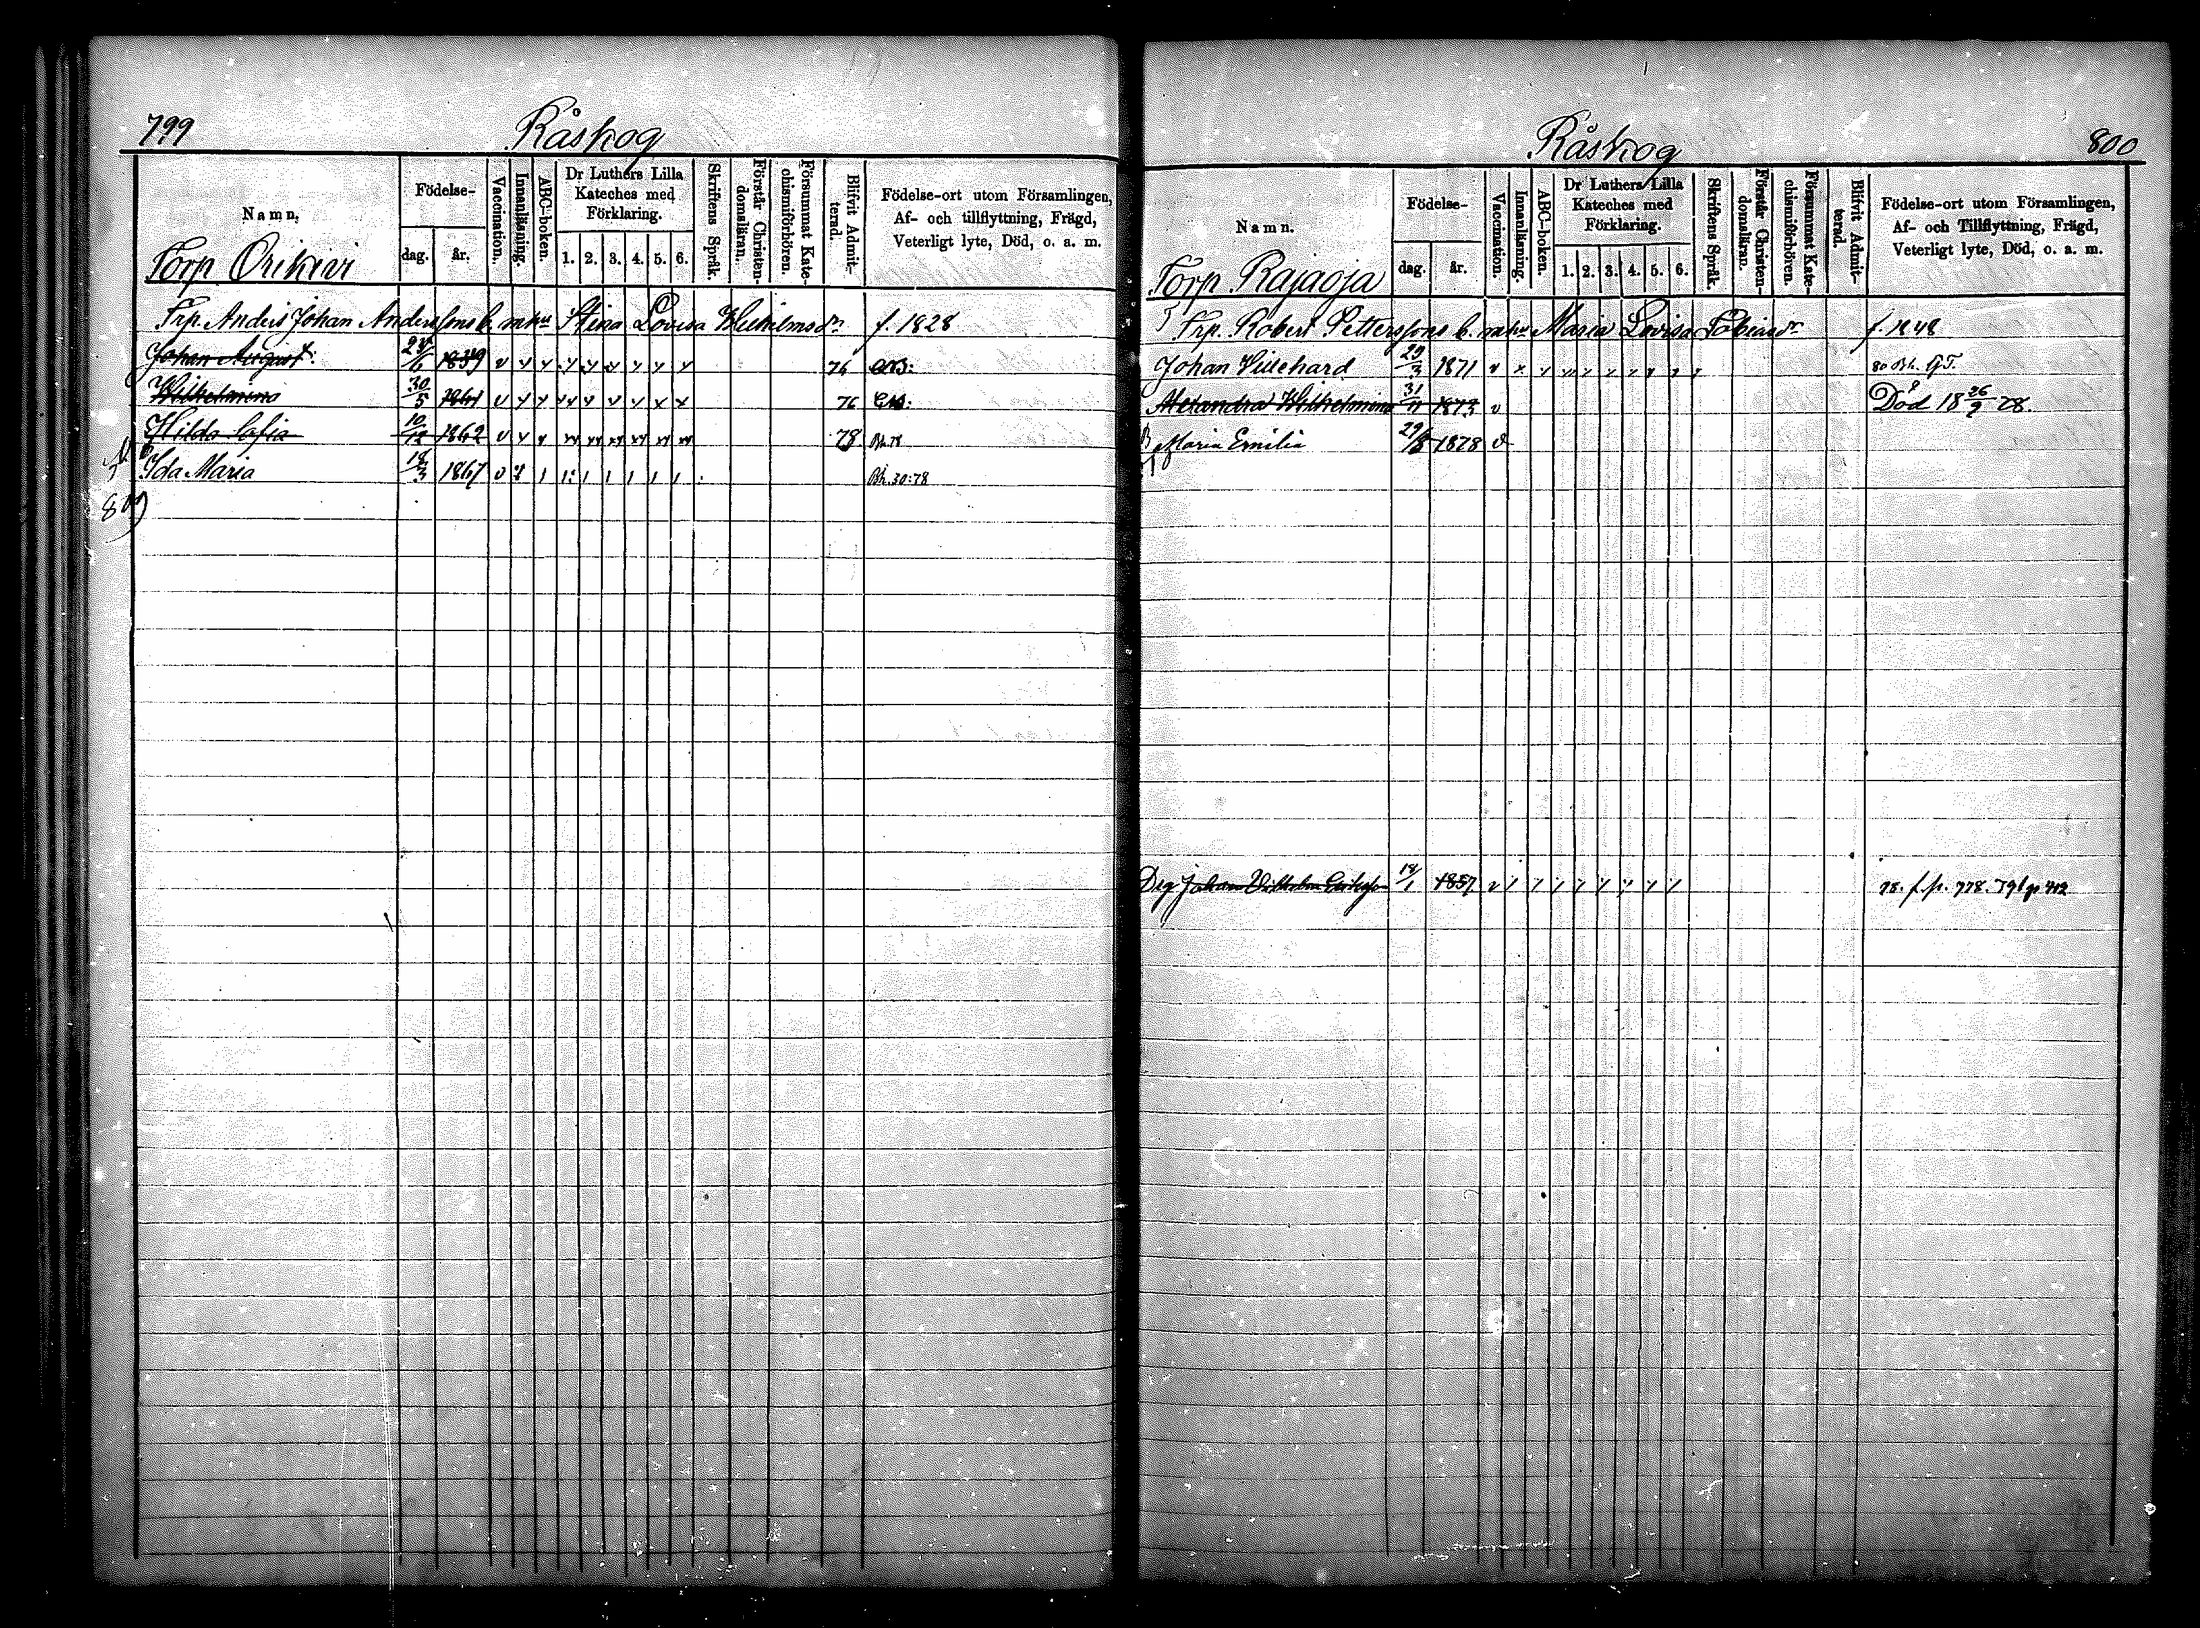 799
Råskog
Namn.
Födelse-
dag.
år.
Vaccination.
Innanläsning.
ABC-boken.
Dr Luthers Lilla
Kateches med
Förklaring.
1. 2. 3. 4. 5. 6.
Skriftens Språk.
Förstår Christen-
domsläran.
Försummat Kate-
chismiförhören.
Blifvit Admit-
terad.
Födelse-ort utom Församlingen,
Af- och tillflyttning, Frägd,
Veterligt lyte, Död, o. a. m.
Torp Orikivi
Trp. Anders Johan Anderssons b. m hu Stina Lovisa Wilhelmsdr f. 1828
Johan August 24/6 1859 v 76
Wilhelmina 30/5 1861 v 76
Hilda Sofia 10/12 1862 v 78 Bh. 78
Ida Maria 18/3 1867 v Bh. 30:78
Råskog
800
Namn.
Födelse-
dag.
år.
Vaccination.
Innanläsning.
ABC-boken.
Dr Luthers Lilla
Kateches med
Förklaring.
1. 2. 3. 4. 5. 6.
Skriftens Språk.
Förstår Christen-
domsläran.
Försummat Kate-
chismiförhören.
Blifvit Admit-
terad.
Födelse-ort utom Församlingen,
Af- och Tillflyttning, Frägd,
Veterligt lyte, Död, o. a. m.
Torp Rajaoja
Trp. Robert Petterssons b. m hu Maria Lovisa Tobiasdr f. 1848
Johan Villehard 29/3 1871 v 80 Bh.
Alexandra Wilhelmina 31/11 1873 v Död 18 26/9 78.
Maria Emilia 29/8 1878 v
Drg Johan Wilhelm 18/1 1857 v 78. f. p. 778.